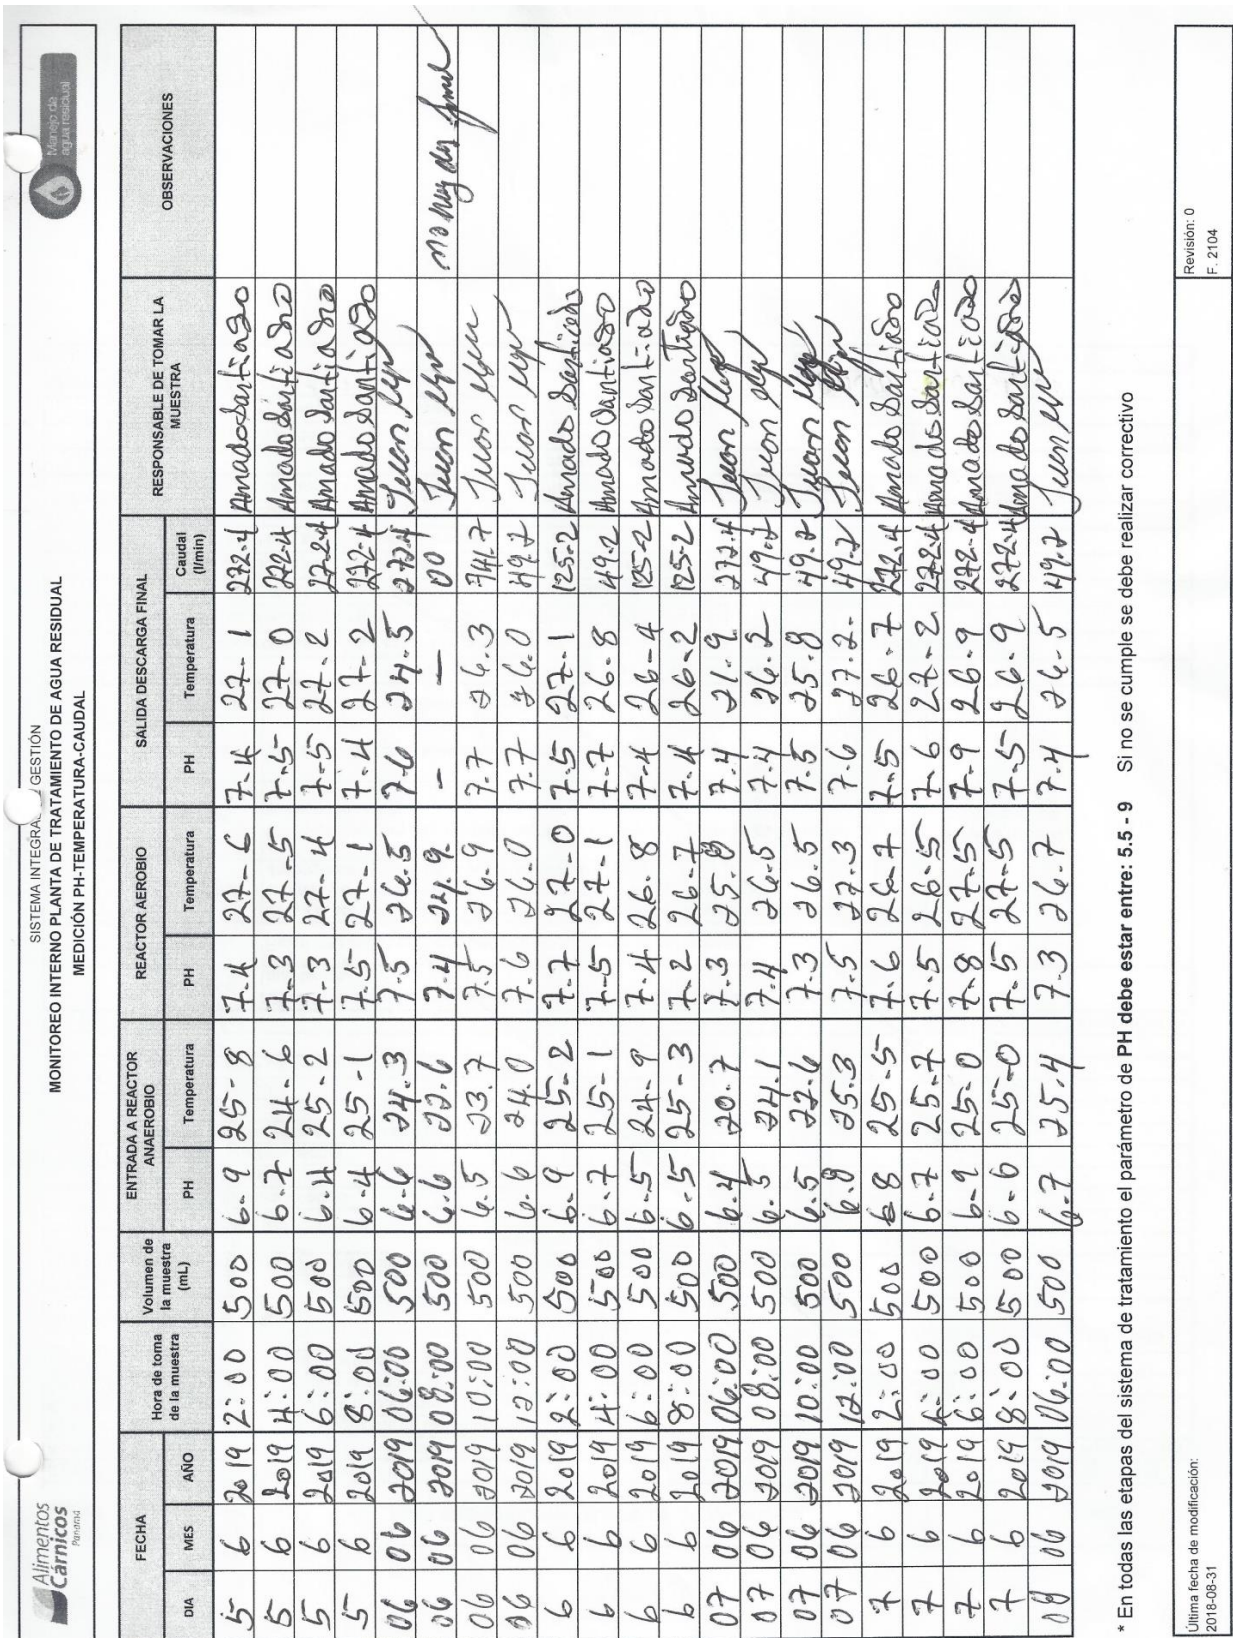 Alimentos
Cárnicos
Panamá
SISTEMA INTEGRA GESTIÓN
MONITOREO INTERNO PLANTA DE TRATAMIENTO DE AGUA RESIDUAL
MEDICIÓN PH-TEMPERATURA-CAUDAL
Manejo de
agua residual
FECHA Hora de toma de la muestra Volumen de la muestra (mL) ENTRADA A REACTOR ANAEROBIO REACTOR AEROBIO SALIDA DESCARGA FINAL RESPONSABLE DE TOMAR LA MUESTRA OBSERVACIONES
DIA MES AÑO PH Temperatura PH Temperatura PH Temperatura Caudal (l/min)
5 6 2019 2:00 500 6-9 25-8 7-4 27-6 7-4 27-1 272-4 Amado Santiago
5 6 2019 4:00 500 6-7 24-6 7-3 27-5 7-5 27-0 272-4 Amado Santiago
5 6 2019 6:00 500 6-4 25-2 7-3 27-4 7-5 27-2 272-4 Amado Santiago
5 6 2019 8:00 500 6-4 25-1 7-5 27-1 7-4 27-2 272-4 Amado Santiago
06 06 2019 06:00 500 6.6 24.3 7.5 26.5 7.6 24.5 272.4 Juan
06 06 2019 08:00 500 6.6 22.6 7.4 24.9 - — 00 Juan no hay
06 06 2019 10:00 500 6.5 23.7 7.5 26.9 7.7 26.3 741.7 Juan
06 06 2019 12:00 500 6.6 24.0 7.6 26.0 7.7 26.0 49.2 Juan
6 6 2019 2:00 500 6-9 25-2 7-7 27-0 7-5 27-1 125-2 Amado Santiago
6 6 2019 4:00 500 6-7 25-1 7-5 27-1 7-7 26-8 49-2 Amado Santiago
6 6 2019 6:00 500 6-5 24-9 7-4 26-8 7-4 26-4 125-2 Amado Santiago
6 6 2019 8:00 500 6-5 25-3 7-2 26-7 7-4 26-2 125-2 Amado Santiago
07 06 2019 06:00 500 6.4 20.7 7.3 25.8 7.4 21.9 272.4 Juan
07 06 2019 08:00 500 6.5 24.1 7.4 26.5 7.4 26.2 49.2 Juan
07 06 2019 10:00 500 6.5 22.6 7.3 26.5 7.5 25.8 49.2 Juan
07 06 2019 12:00 500 6.8 25.3 7.5 27.3 7.6 27.2 49.2 Juan
7 6 2019 2:00 500 6-8 25-5 7-6 26-7 7-5 26-7 272-4 Amado Santiago
7 6 2019 4:00 500 6-7 25-7 7-5 26-5 7-6 27-2 272-4 Amado Santiago
7 6 2019 6:00 500 6-9 25-0 7-8 27-5 7-9 26-9 272-4 Amado Santiago
7 6 2019 8:00 500 6-6 25-0 7-5 27-5 7-5 26-9 272-4 Amado Santiago
08 06 2019 06:00 500 6.7 25.4 7.3 26.7 7.4 26.5 49.2 Juan
* En todas las etapas del sistema de tratamiento el parámetro de PH debe estar entre: 5.5 - 9 Si no se cumple se debe realizar correctivo
Última fecha de modificación:
2018-08-31
Revisión: 0
F. 2104